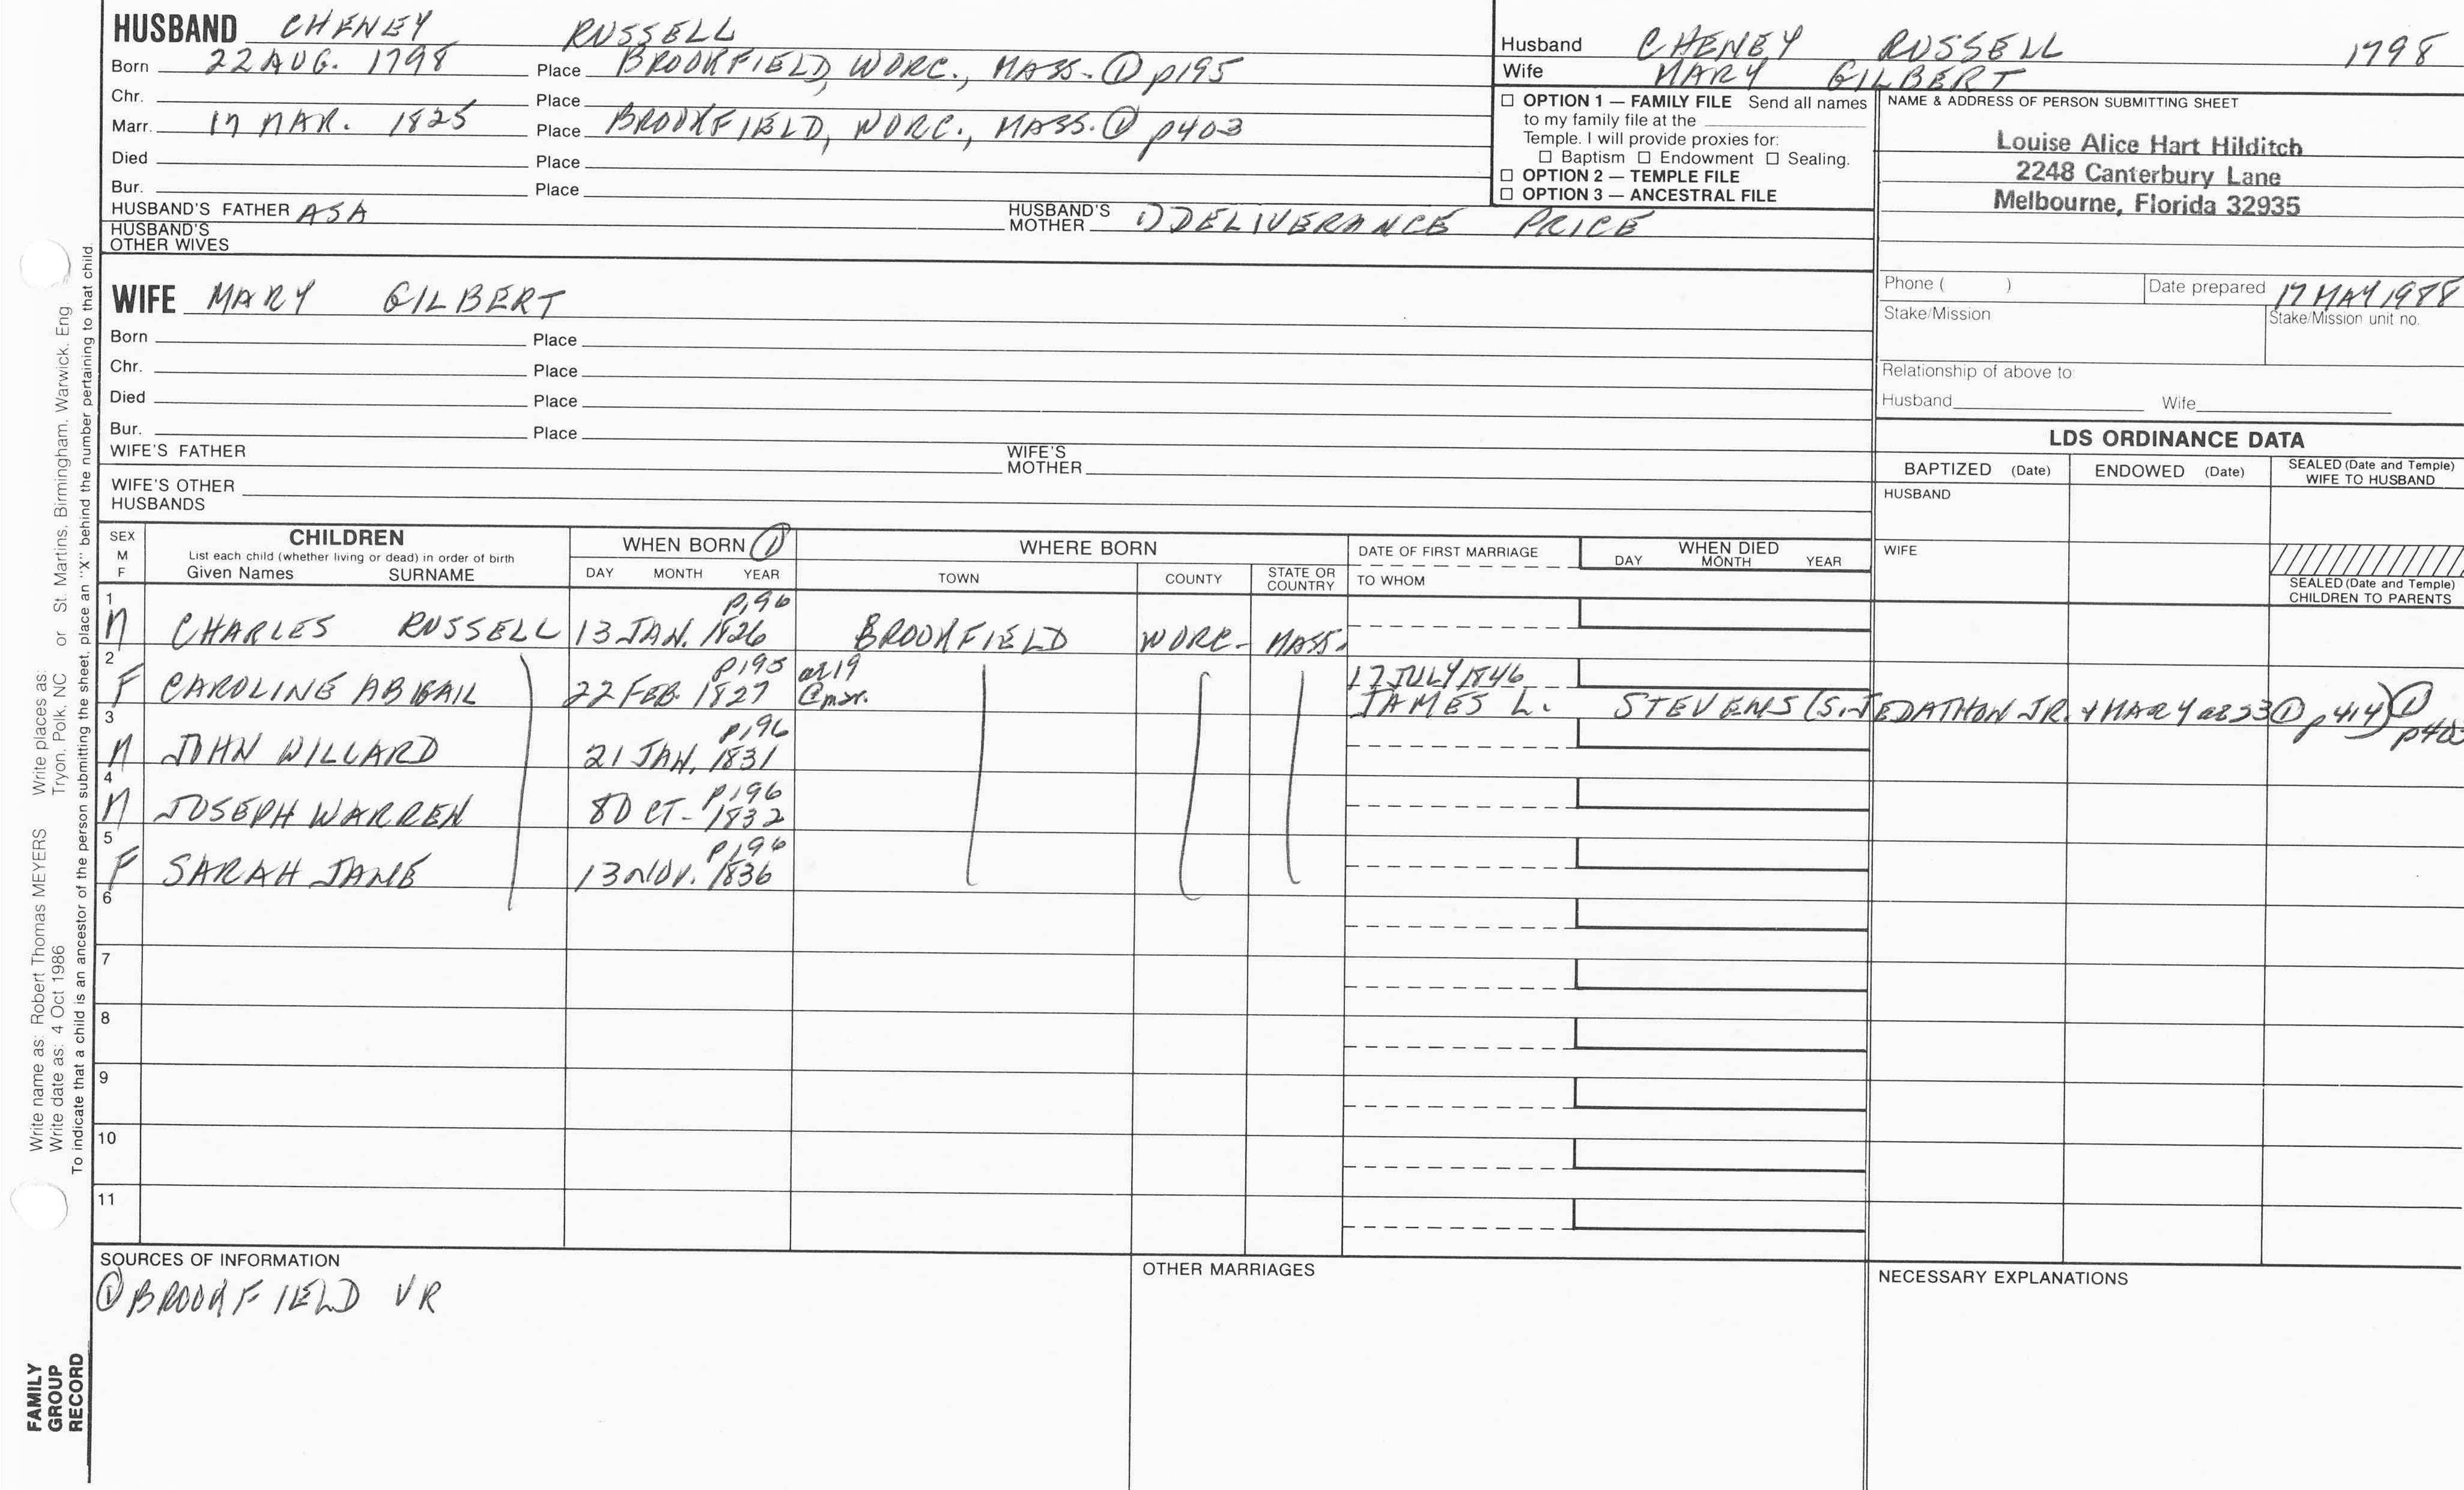 HUSBAND CHENEY RUSSELL
Born 22 AUG. 1798 Place BROOKFIELD, WORC., MASS. ① p195
Chr. Place
Marr. 17 MAR. 1825 Place BROOKFIELD, WORC., MASS. ① p403
Died Place
Bur. Place
HUSBAND'S FATHER ASA HUSBAND'S MOTHER 1) DELIVERANCE PRICE
HUSBAND'S OTHER WIVES
WIFE MARY GILBERT
Born Place
Chr. Place
Died Place
Bur. Place
WIFE'S FATHER WIFE'S MOTHER
WIFE'S OTHER HUSBANDS
Husband CHENEY RUSSELL 1798
Wife MARY GILBERT
☐ OPTION 1 — FAMILY FILE Send all names
to my family file at the
Temple. I will provide proxies for:
☐ Baptism ☐ Endowment ☐ Sealing.
☐ OPTION 2 — TEMPLE FILE
☐ OPTION 3 — ANCESTRAL FILE
NAME & ADDRESS OF PERSON SUBMITTING SHEET
Louise Alice Hart Hilditch
2248 Canterbury Lane
Melbourne, Florida 32935
Phone ( ) Date prepared 17 MAY 1988
Stake/Mission Stake/Mission unit no.
Relationship of above to:
Husband Wife
LDS ORDINANCE DATA
BAPTIZED (Date) ENDOWED (Date) SEALED (Date and Temple) WIFE TO HUSBAND
HUSBAND
WIFE
SEALED (Date and Temple) CHILDREN TO PARENTS
SEX M F CHILDREN WHEN BORN ① WHERE BORN DATE OF FIRST MARRIAGE WHEN DIED
List each child (whether living or dead) in order of birth
Given Names SURNAME DAY MONTH YEAR TOWN COUNTY STATE OR COUNTRY TO WHOM DAY MONTH YEAR
1 p196
M CHARLES RUSSELL 13 JAN. 1826 BROOKFIELD WORC. MASS.
2 p195 ae 19 17 JULY 1846
F CAROLINE ABIGAIL 22 FEB. 1827 @ mar. JAMES L. STEVENS (S. JEDATHON JR. + MARY ae 23 ① p414) ① p403
3 p196
M JOHN WILLARD 21 JAN. 1831
4 p196
M JOSEPH WARREN 8 OCT. 1832
5 p196
F SARAH JANE 13 NOV. 1836
6
7
8
9
10
11
SOURCES OF INFORMATION
① BROOKFIELD VR
OTHER MARRIAGES
NECESSARY EXPLANATIONS
Write name as: Robert Thomas MEYERS Write places as:
Write date as: 4 Oct 1986 Tryon, Polk, NC or St. Martins, Birmingham, Warwick, Eng
To indicate that a child is an ancestor of the person submitting the sheet, place an "X" behind the number pertaining to that child.
FAMILY
GROUP
RECORD